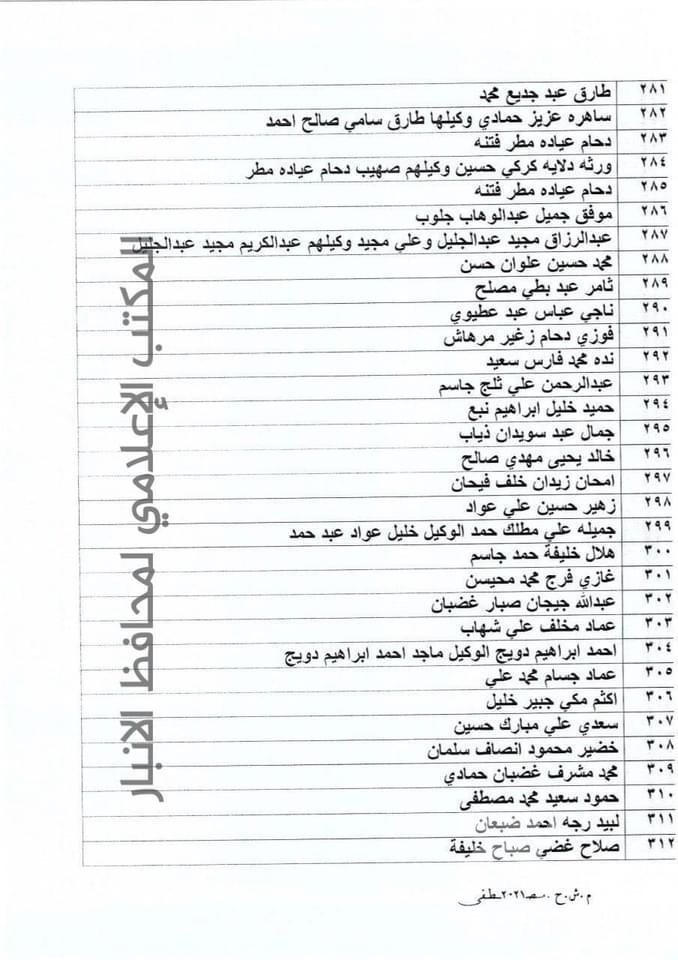 ٢٨١ طارق عبد جديع محمد
٢٨٢ ساهره عزيز حمادي وكيلها طارق سامي صالح احمد
٢٨٣ دحام عياده مطر فتنه
٢٨٤ ورثه دلايه كركي حسين وكيلهم صهيب دحام عياده مطر
٢٨٥ دحام عياده مطر فتنه
٢٨٦ موفق جميل عبدالوهاب جلوب
٢٨٧ عبدالرزاق مجيد عبدالجليل وعلي مجيد وكيلهم عبدالكريم مجيد عبدالجليل
٢٨٨ محمد حسين علوان حسن
٢٨٩ ثامر عبد بطي مصلح
٢٩٠ ناجي عباس عبد عطيوي
٢٩١ فوزي دحام زغير مرهاش
٢٩٢ نده محمد فارس سعيد
٢٩٣ عبدالرحمن علي ثلج جاسم
٢٩٤ حميد خليل ابراهيم نبع
٢٩٥ جمال عبد سويدان ذياب
٢٩٦ خالد يحيى مهدي صالح
٢٩٧ امحان زيدان خلف فيحان
٢٩٨ زهير حسين علي عواد
٢٩٩ جميله علي مطلك حمد الوكيل خليل عواد عبد حمد
٣٠٠ هلال خليفة حمد جاسم
٣٠١ غازي فرج محمد محيسن
٣٠٢ عبدالله جيجان صبار غضبان
٣٠٣ عماد مخلف علي شهاب
٣٠٤ احمد ابراهيم دويج الوكيل ماجد احمد ابراهيم دويج
٣٠٥ عماد جسام محمد علي
٣٠٦ اكثم مكي جبير خليل
٣٠٧ سعدي علي مبارك حسين
٣٠٨ خضير محمود انصاف سلمان
٣٠٩ محمد مشرف غضبان حمادي
٣١٠ حمود سعيد محمد مصطفى
٣١١ لبيد رجه احمد ضبعان
٣١٢ صلاح غضي صباح خليفة
المكتب الإعلامي لمحافظ الانبار
م.ش.ح